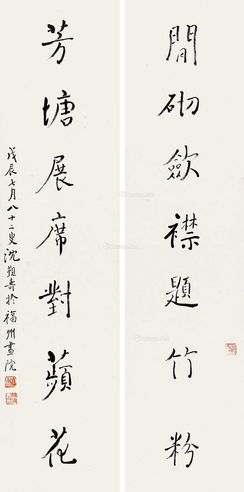 閒砌斂襟題竹粉
芳塘展席對蘋花
戊辰七月八十二叟沈覲壽於福州畫院